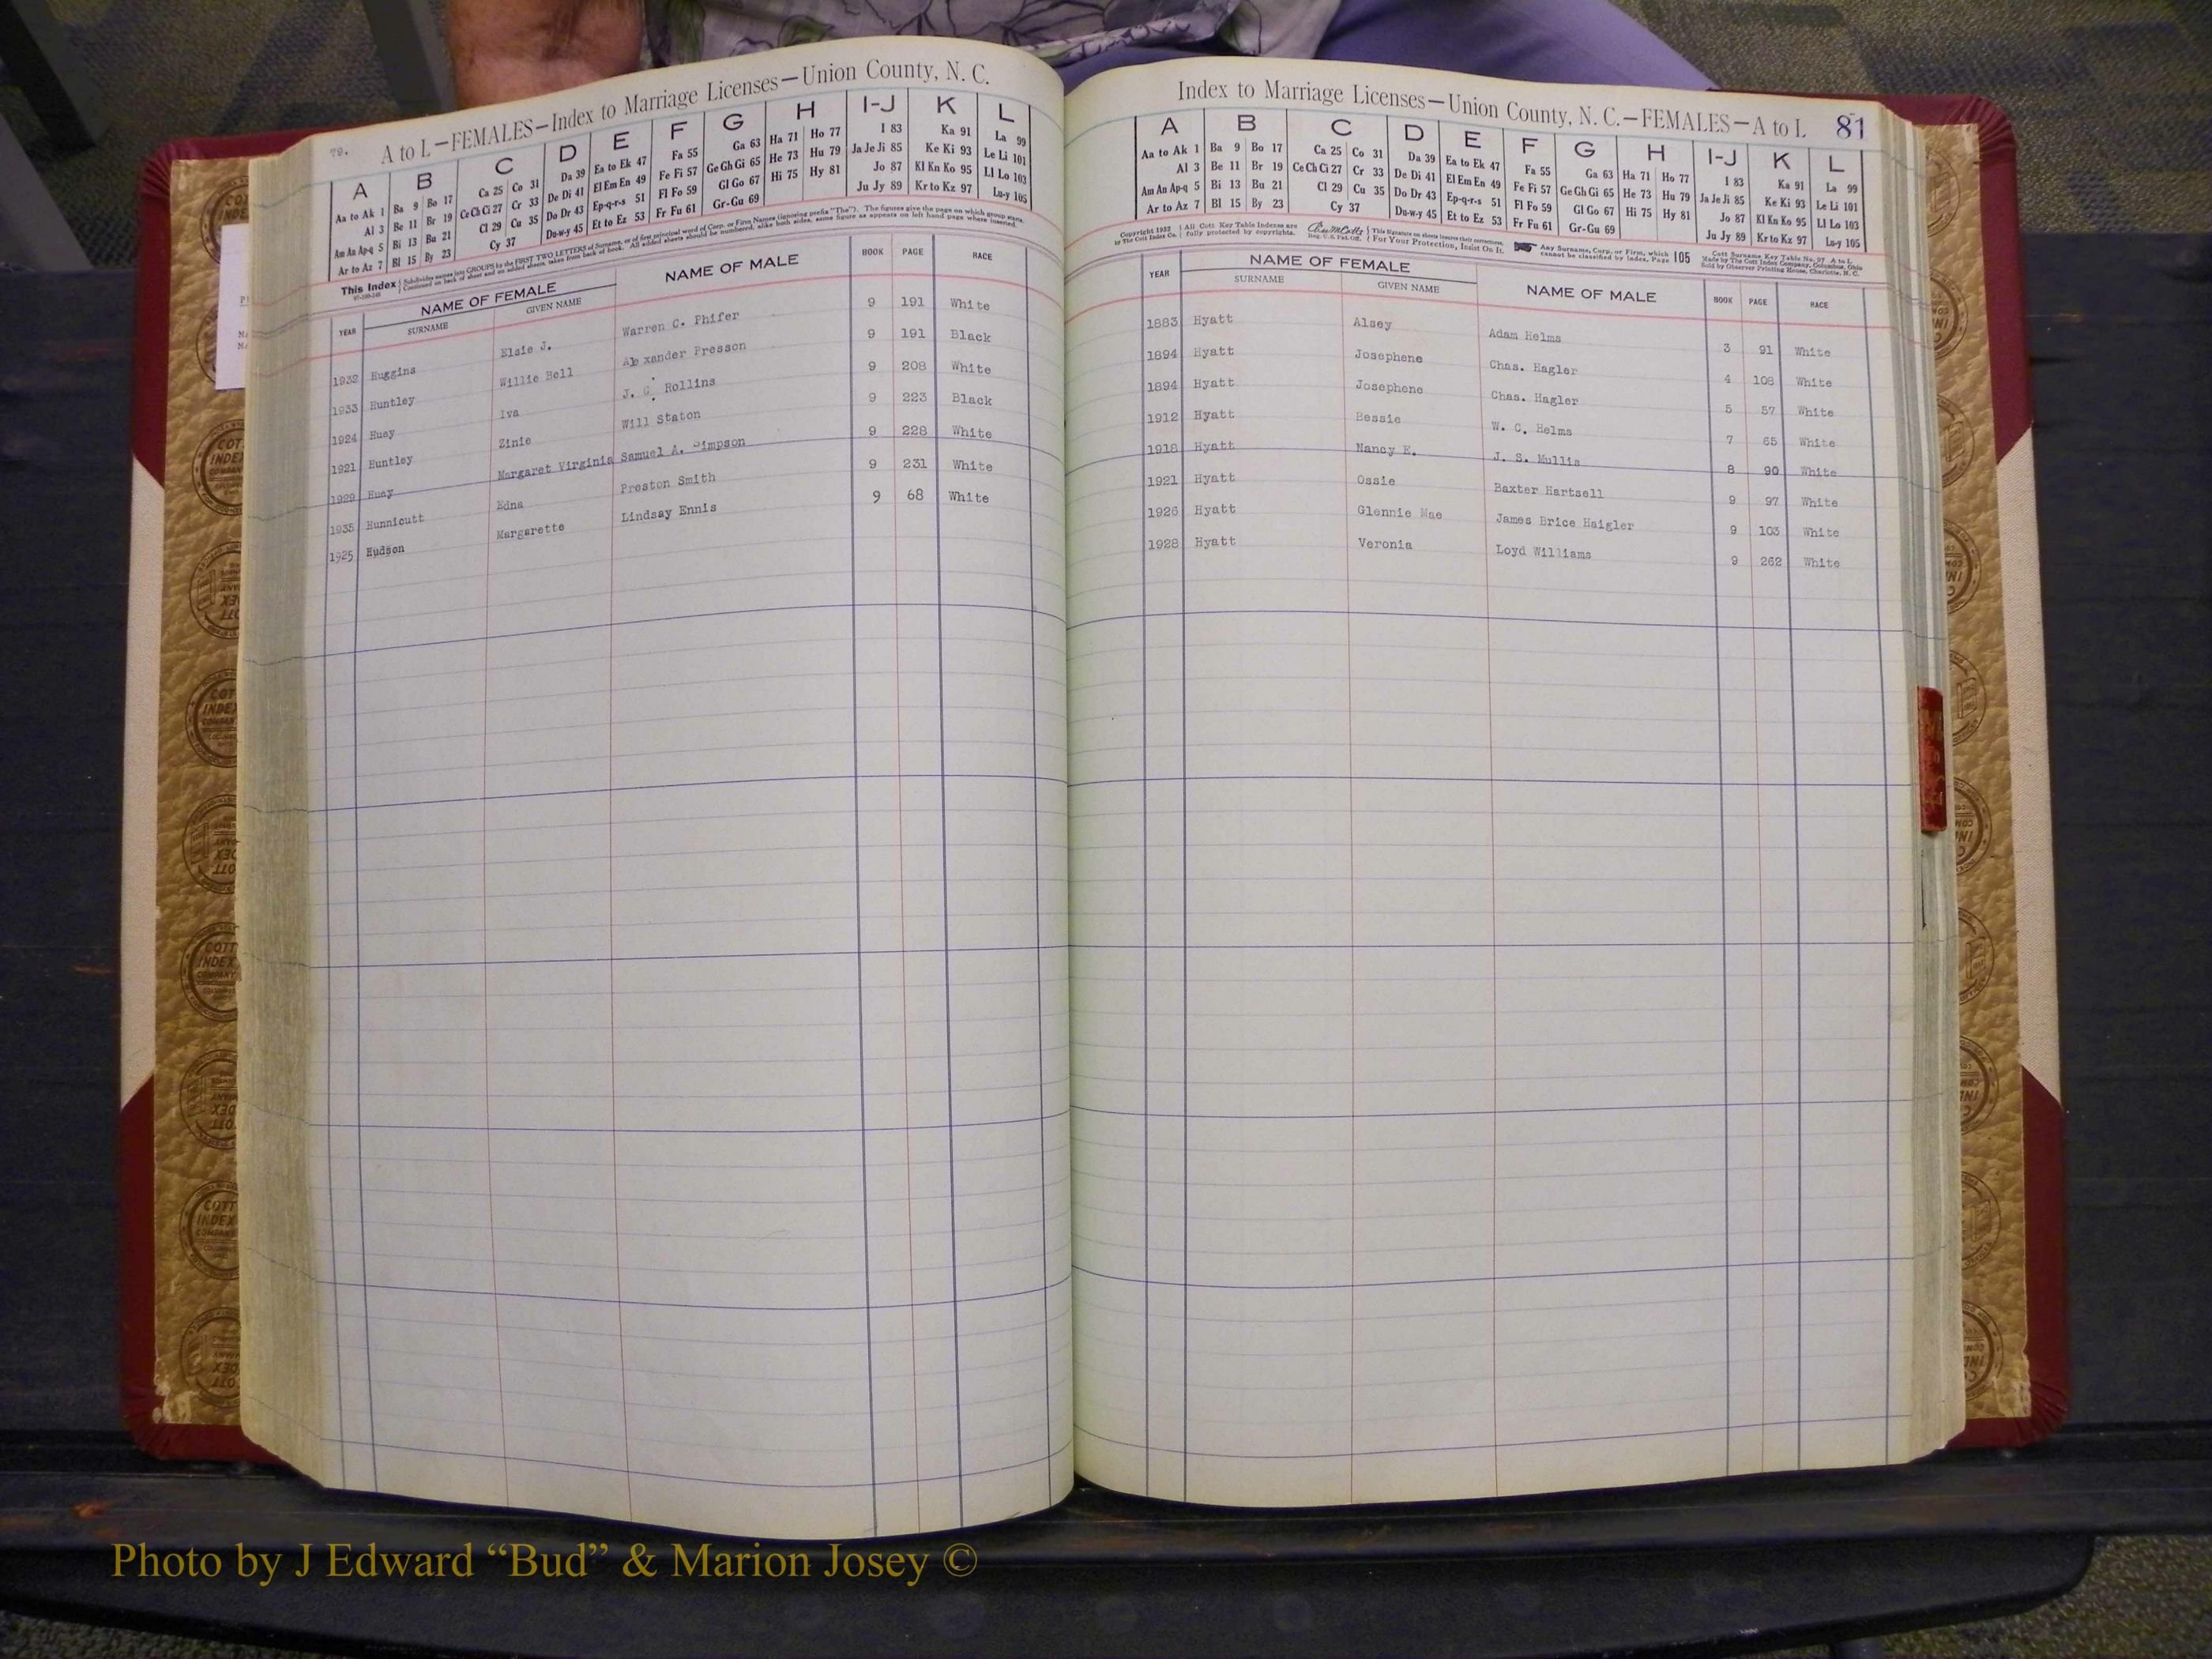 79.
A to L—FEMALES—Index to Marriage Licenses—Union County, N. C.
A B C D E F G H I-J K L
Aa to Ak 1 Ba 9 Bo 17 Ca 25 Co 31 Da 39 Ea to Ek 47 Fa 55 Ga 63 Ha 71 Ho 77 I 83 Ka 91 La 99
Al 3 Be 11 Br 19 Ce Ch Ci 27 Cr 33 De Di 41 El Em En 49 Fe Fi 57 Ge Gh Gi 65 He 73 Hu 79 Ja Je Ji 85 Ke Ki 93 Le Li 101
Am An Ap-q 5 Bi 13 Bu 21 Cl 29 Cu 35 Do Dr 43 Ep-q-r-s 51 Fl Fo 59 Gl Go 67 Hi 75 Hy 81 Jo 87 Kl Kn Ko 95 Ll Lo 103
Ar to Az 7 Bl 15 By 23 Cy 37 Du-w-y 45 Et to Ez 53 Fr Fu 61 Gr-Gu 69 Ju Jy 89 Kr to Kz 97 Lu-y 105
This Index Subdivides names into GROUPS by the FIRST TWO LETTERS of Surname, or of first principal word of Corp. or Firm Names (ignoring prefix "The"). The figures give the page on which group starts.
Continued on back of sheet and on added sheets, taken from back of book. All added sheets should be numbered, alike both sides, same figure as appears on left hand page where inserted.
YEAR NAME OF FEMALE NAME OF MALE BOOK PAGE RACE
SURNAME GIVEN NAME
1932 Huggins Elsie J. Warren C. Phifer 9 191 White
1933 Huntley Willie Bell Alexander Presson 9 191 Black
1924 Huey Iva J. C. Rollins 9 208 White
1921 Huntley Zinie Will Staton 9 223 Black
1929 Huey Margaret Virginia Samuel A. Simpson 9 228 White
1935 Hunnicutt Edna Preston Smith 9 231 White
1925 Hudson Margarette Lindsay Ennis 9 68 White
Index to Marriage Licenses—Union County, N. C.—FEMALES—A to L 81
A B C D E F G H I-J K L
Aa to Ak 1 Ba 9 Bo 17 Ca 25 Co 31 Da 39 Ea to Ek 47 Fa 55 Ga 63 Ha 71 Ho 77 I 83 Ka 91 La 99
Al 3 Be 11 Br 19 Ce Ch Ci 27 Cr 33 De Di 41 El Em En 49 Fe Fi 57 Ge Gh Gi 65 He 73 Hu 79 Ja Je Ji 85 Ke Ki 93 Le Li 101
Am An Ap-q 5 Bi 13 Bu 21 Cl 29 Cu 35 Do Dr 43 Ep-q-r-s 51 Fl Fo 59 Gl Go 67 Hi 75 Hy 81 Jo 87 Kl Kn Ko 95 Ll Lo 103
Ar to Az 7 Bl 15 By 23 Cy 37 Du-w-y 45 Et to Ez 53 Fr Fu 61 Gr-Gu 69 Ju Jy 89 Kr to Kz 97 Lu-y 105
Copyright 1922 All Cott Key Table Indexes are This Signature on sheets insures their correctness. Any Surname, Corp. or Firm, which 105 Cott Surname Key Table No. 97 A to L
by The Cott Index Co. fully protected by copyrights. Reg. U. S. Pat. Off. For Your Protection, Insist On It. cannot be classified by Index, Page Made by The Cott Index Company, Columbus, Ohio
Sold by Observer Printing House, Charlotte, N. C.
YEAR NAME OF FEMALE NAME OF MALE BOOK PAGE RACE
SURNAME GIVEN NAME
1883 Hyatt Alsey Adam Helms 3 91 White
1894 Hyatt Josephene Chas. Hagler 4 108 White
1894 Hyatt Josephene Chas. Hagler 5 57 White
1912 Hyatt Bessie W. C. Helms 7 65 White
1918 Hyatt Nancy E. J. S. Mullis 8 90 White
1921 Hyatt Ossie Baxter Hartsell 9 97 White
1926 Hyatt Glennie Mae James Brice Haigler 9 103 White
1928 Hyatt Veronia Loyd Williams 9 262 White
Photo by J Edward “Bud” & Marion Josey ©